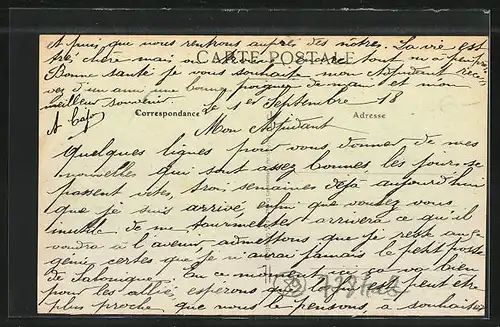 et puis que nous rentrons auprès des nôtres. La vie est
très chère mais on tout va à peu près
CARTE POSTALE
Bonne santé je vous souhaite mon Adjudant recevez
d'un ami une bonne poignée de main et mon
meilleur souvenir
Le 1er Septembre 18
Correspondance
Adresse
Mon Adjudant
Quelques lignes pour vous donner de mes
nouvelles qui sont assez bonnes, les jours se
passent vite, trois semaines déjà aujourd'hui
que je suis arrivé, enfin que voulez vous
inutile de me tourmenter arrivera ce qu'il
voudra à l'avenir, admettons que je reste au
génie, certes que je n'aurai jamais le petit poste
de Salonique. En ce moment, ça va bien
pour les alliés, espérons que la fin est peut être
plus proche que nous le pensons, à souhaiter